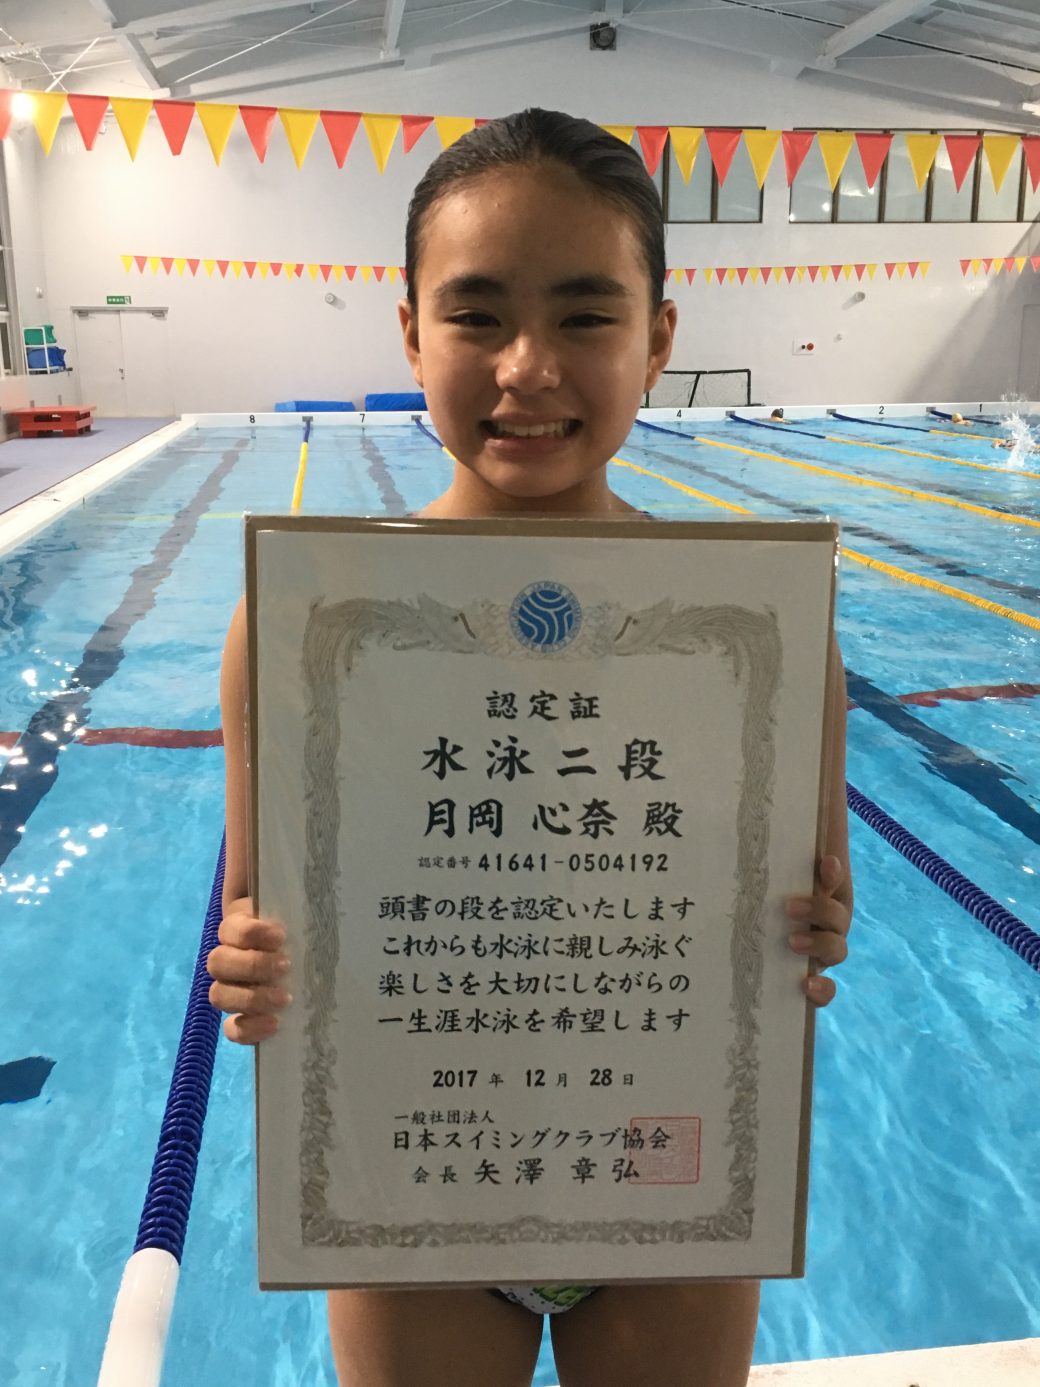 8 7 4 3 2 1
認定証
水泳二段
月岡 心奈 殿
認定番号 41641-0504192
頭書の段を認定いたします
これからも水泳に親しみ泳ぐ
楽しさを大切にしながらの
一生涯水泳を希望します
2017 年 12 月 28 日
一般社団法人
日本スイミングクラブ協会
会長 矢澤 章弘